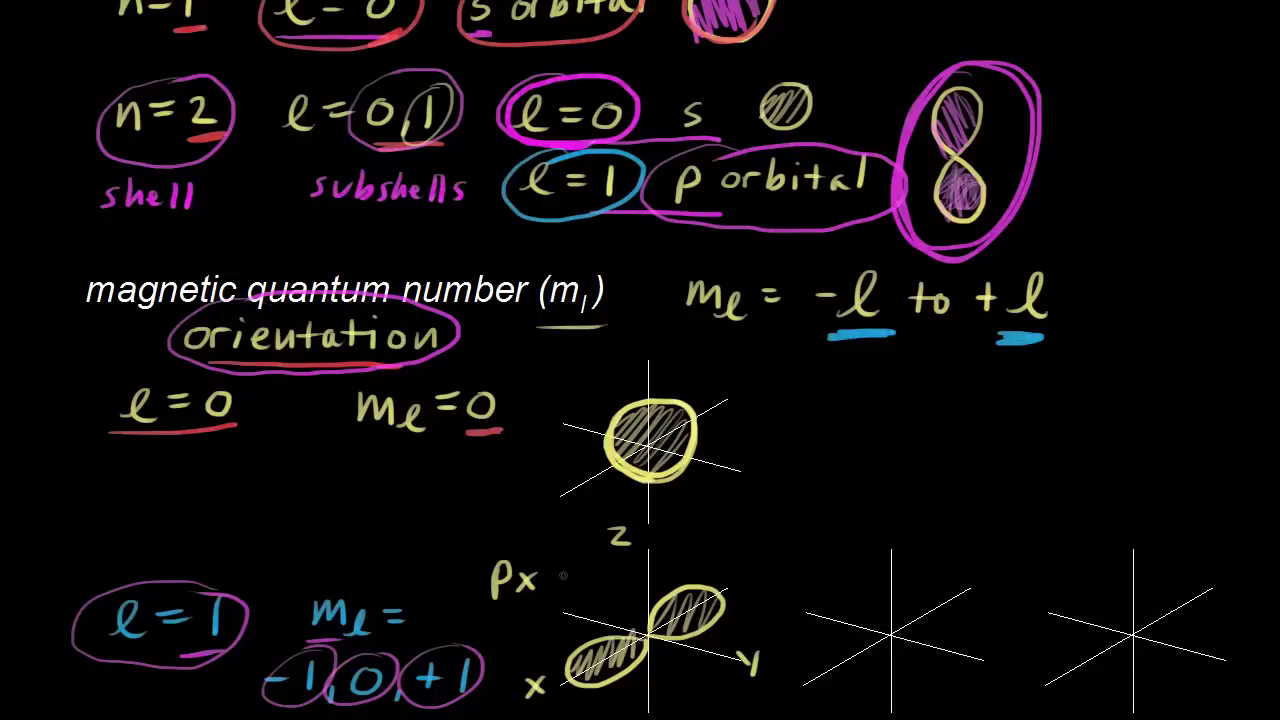 n=1 l=0 s orbital
n=2 l=0,1 l=0 s
shell subshells l=1 p orbital
magnetic quantum number (ml) ml = -l to +l
orientation
l=0 ml=0
z
px
l=1 ml=
-1,0,+1 x y